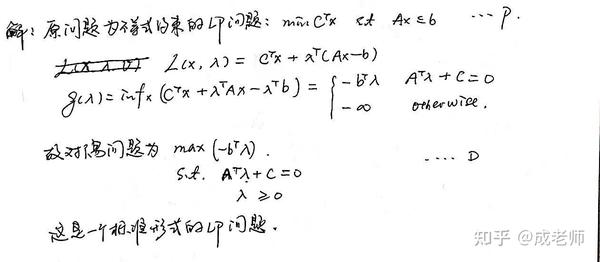 解: 原问题为不等式约束的LP问题: min CᵀX st AX≤b ···P.
L(x, λ) = CᵀX + λᵀ(AX-b)
g(λ) = inf_x (CᵀX + λᵀAX - λᵀb) = { -bᵀλ Aᵀλ+C=0
-∞ otherwise.
故对偶问题为 max (-bᵀλ).
s.t. Aᵀλ+C=0 ····D
λ ≥0
这是一个标准形式的LP问题.
知乎 @成老师